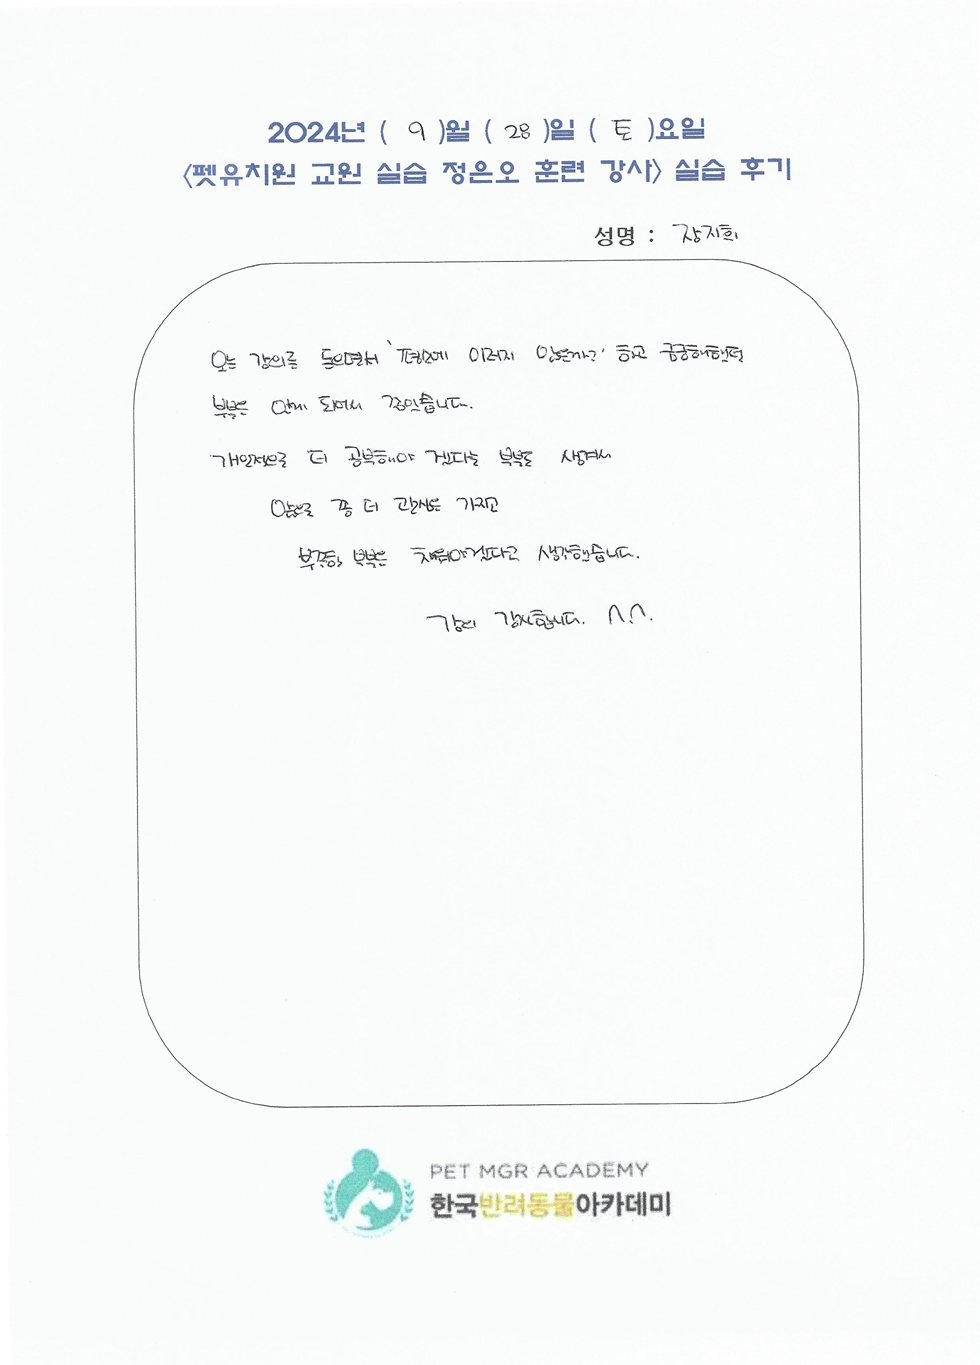 2024년 ( 9 )월 ( 28 )일 ( 토 )요일
<펫유치원 교원 실습 정은오 훈련 강사> 실습 후기
성명 : 장지희
오늘 강의를 들으면서 '평소에 이러지 않을까?' 하고 궁금해했던
부분을 알게 되어서 재밌었습니다.
개인적으로 더 공부해야 겠다는 부분도 생겨서
앞으로 좀 더 관심을 가지고
부족한 부분은 채워야겠다고 생각했습니다.
강의 감사합니다. ^.^.
PET MGR ACADEMY
한국반려동물아카데미